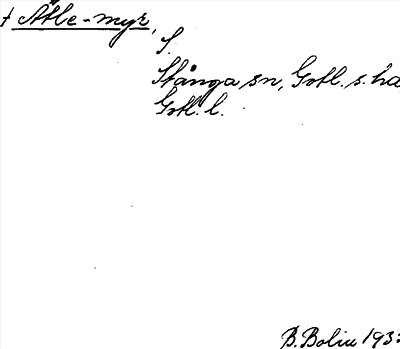 † Atle-myr,
S.
Stånga sn, Gotl. s. hd
Gotl. l.
B. Bolin 193